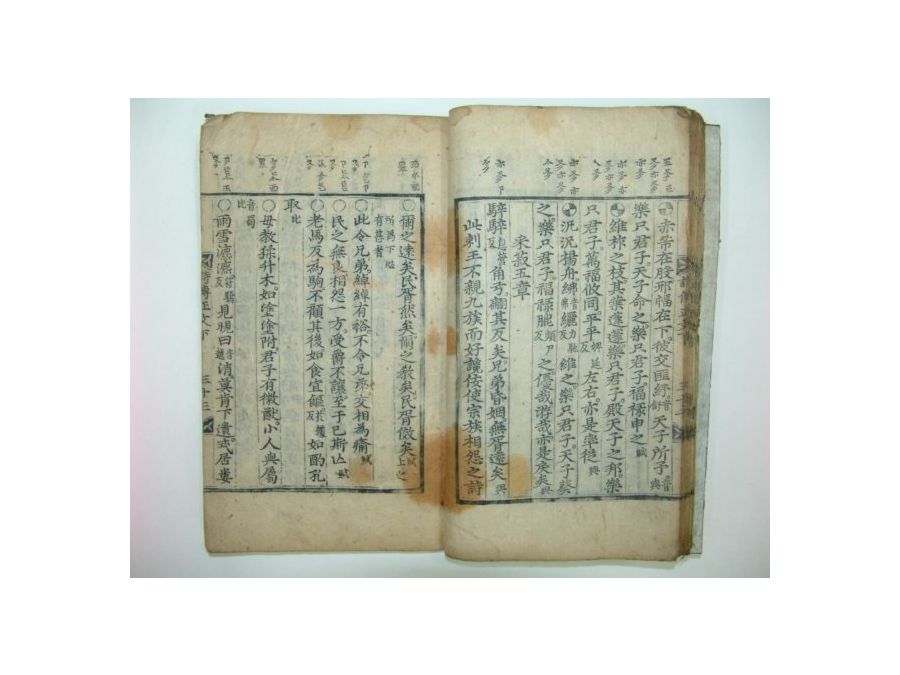 ○赤芾在股邪幅在下彼交匪紓音舒天子所予音與
樂只君子天子命之樂只君子福祿申之賦
○維柞之枝其葉蓬蓬樂只君子殿天子之邦樂
只君子萬福攸同平平婢延反左右亦是率從興
○汎汎楊舟紼音弗纚力馳反維之樂只君子天子葵
之樂只君子福祿膍頻尸反之優哉游哉亦是戾矣興
采菽五章
騂騂息營反角弓翩其反矣兄弟昏姻無胥遠矣興
此刺王不親九族而好讒佞使宗族相怨之詩
○爾之遠矣民胥然矣爾之教矣民胥傚矣賦上之
所為下必有甚者
○此令兄弟綽綽有裕不令兄弟交相為瘉賦
○民之無良相怨一方受爵不讓至于已斯亡賦
○老馬反為駒不顧其後如食宜饇如酌孔
取比
○毋教猱升木如塗塗附君子有徽猷小人與屬
音蜀比
○雨雪瀌瀌符驕反見晛曰音越消莫肯下遺式居婁
詩傳正文下 三十三